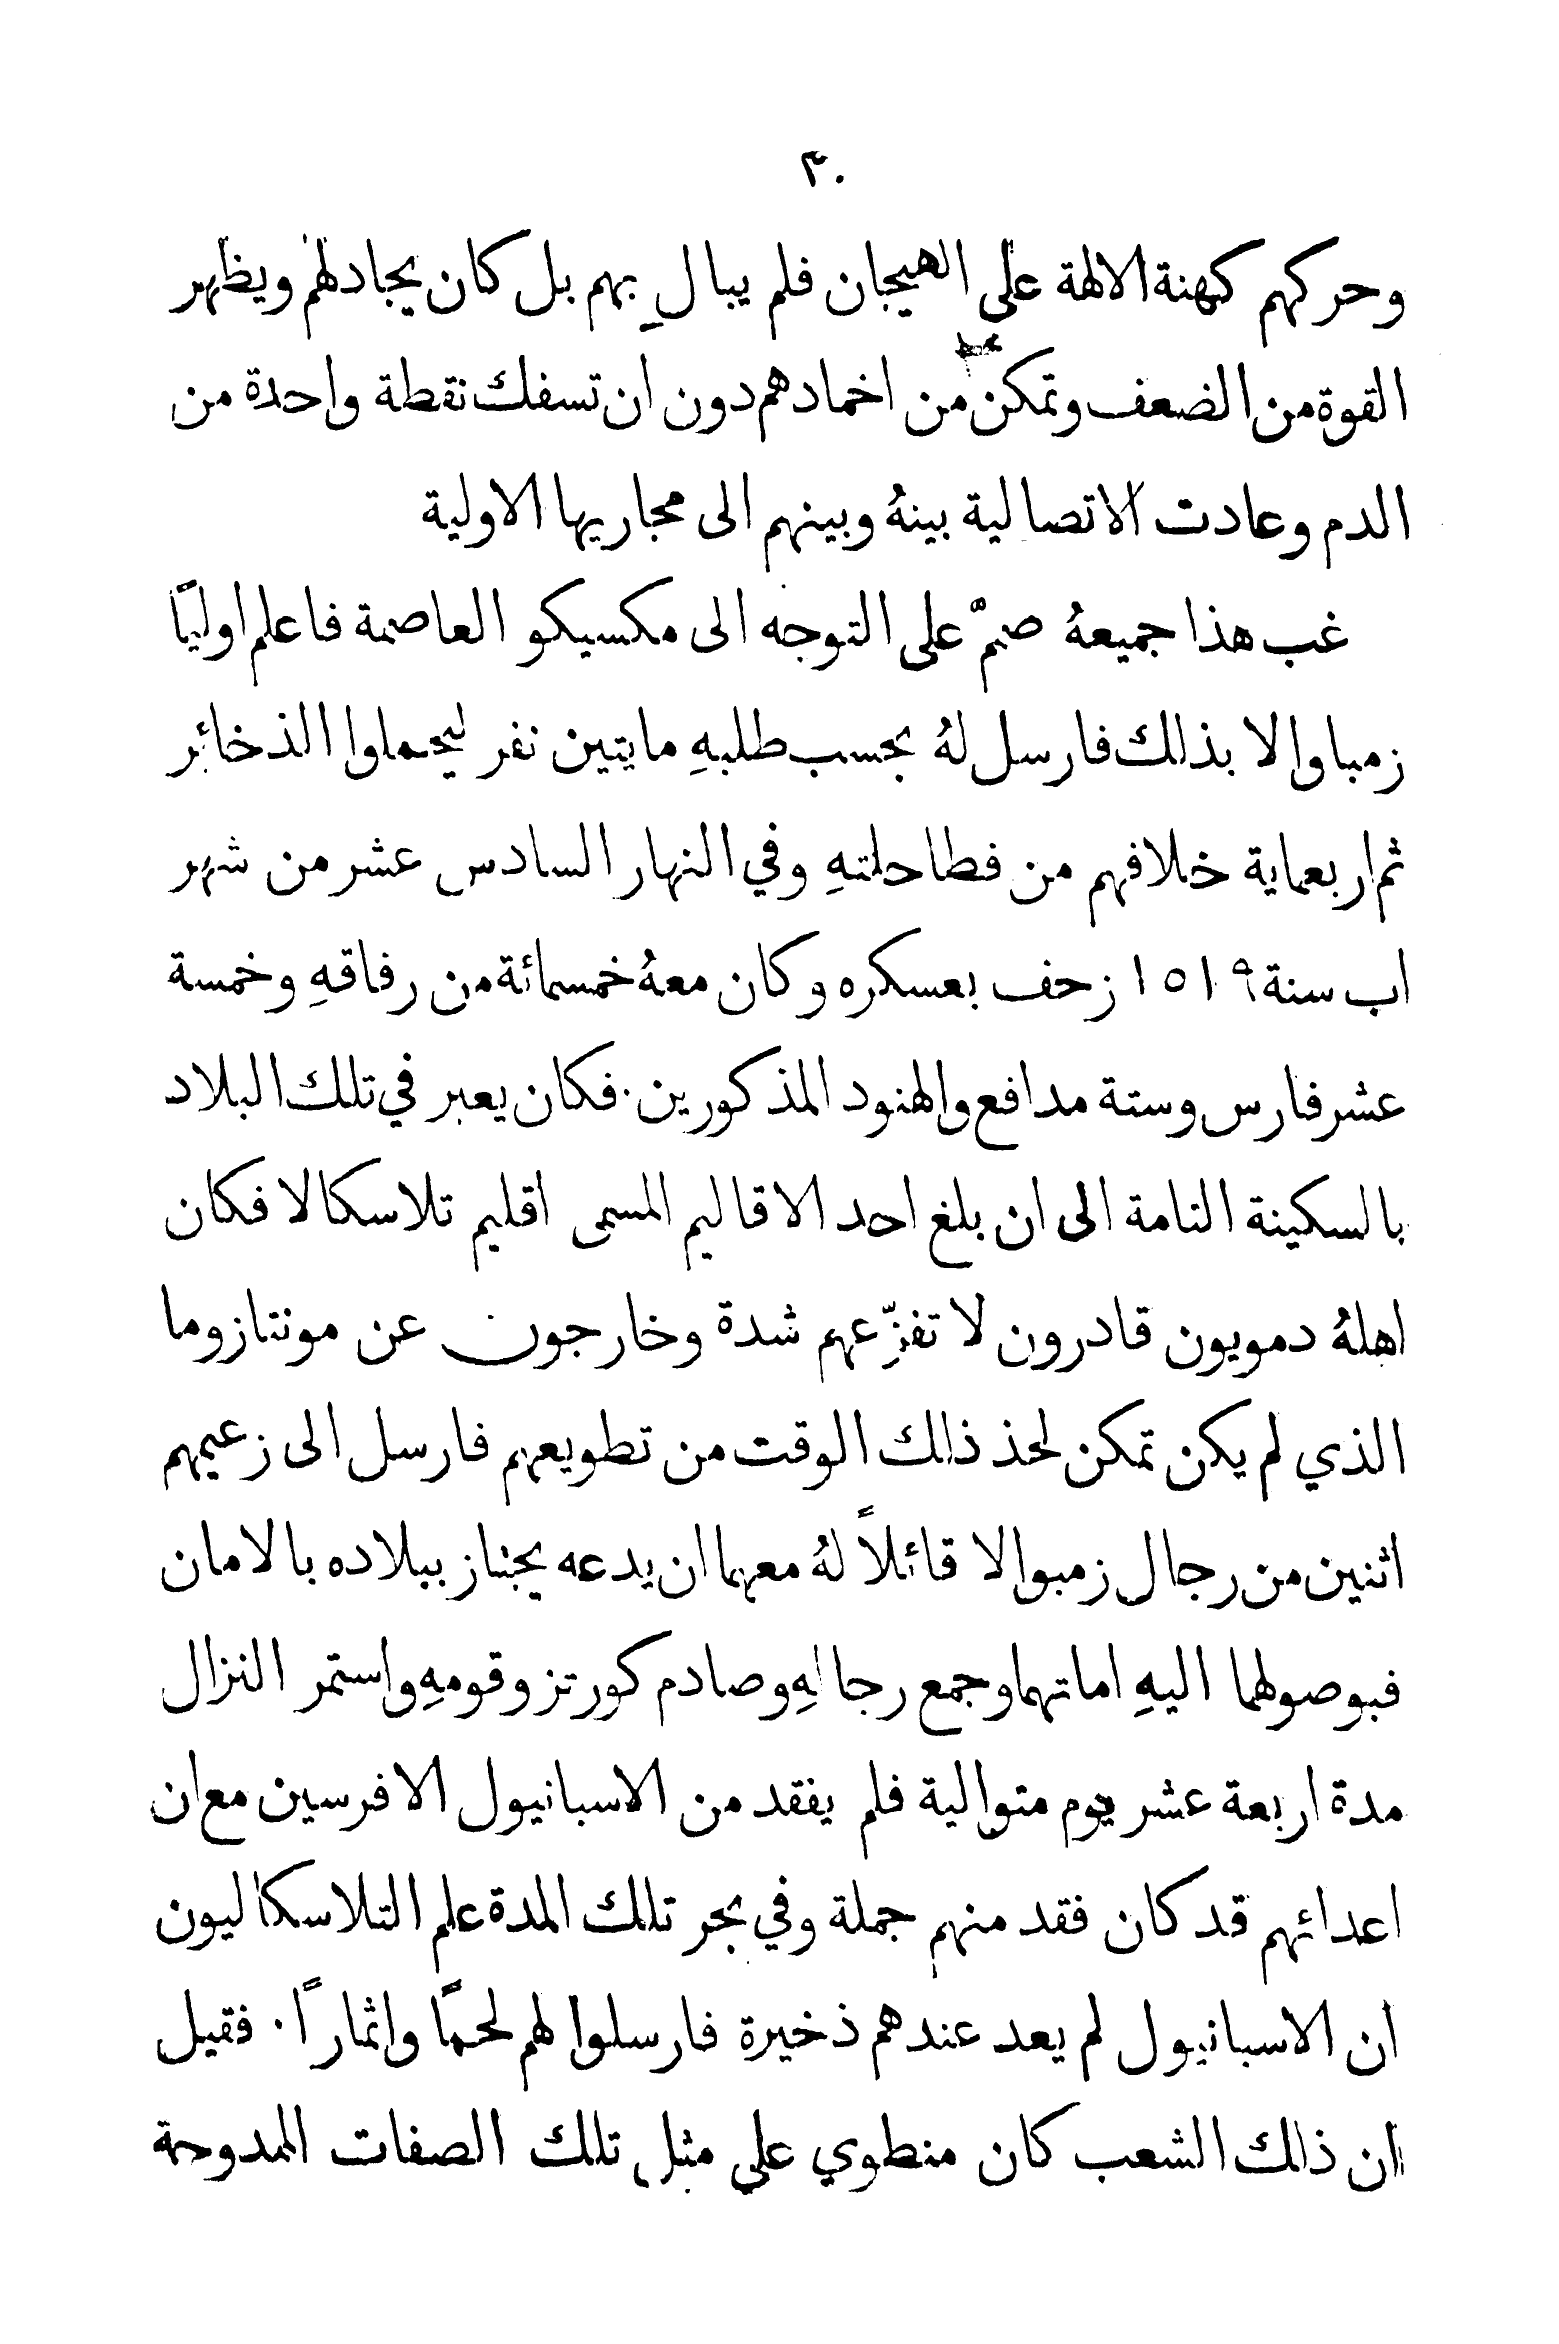 ٣٠
وحركهم كهنة الالهة على الهيجان فلم يبالِ بهم بل كان يجادلهم ويظهر
القوة من الضعف وتمكن من اخمادهم دون ان تسفك نقطة واحدة من
الدم وعادت الاتصالية بينهُ وبينهم الى مجاريها الاولية
غب هذا جميعهُ صمّ على التوجه الى مكسيكو العاصمة فاعلم اوليًا
زمباوالا بذلك فارسل لهُ بحسب طلبهِ مايتين نفر ليحملوا الذخائر
ثم اربعماية خلافهم من فطاحلتهِ وفي النهار السادس عشر من شهر
اب سنة ١٥١٩ زحف بعسكره وكان معهُ خمسمائة من رفاقهِ وخمسة
عشر فارس وستة مدافع والهنود المذكورين. فكان يعبر في تلك البلاد
بالسكينة التامة الى ان بلغ احد الاقاليم المسمى اقليم تلاسكالا فكان
اهلهُ دمويون قادرون لا تفزِّعهم شدة وخارجون عن مونتازوما
الذي لم يكن تمكن لحذ ذلك الوقت من تطويعهم فارسل الى زعيمهم
اثنين من رجال زمبوالا قائلاً لهُ معهما ان يدعه يجتاز ببلاده بالامان
فبوصولهما اليهِ اماتهما وجمع رجالهِ وصادم كورتز وقومهِ واستمر النزال
مدة اربعة عشر يوم متوالية فلم يفقد من الاسبانيول الا فرسين مع ان
اعدائهم قد كان فقد منهم جملة وفي بحر تلك المدة علم التلاسكاليون
ان الاسبانيول لم يعد عندهم ذخيرة فارسلوا لهم لحمًا واثمارًا. فقيل
ان ذلك الشعب كان منطوي على مثل تلك الصفات الممدوحة